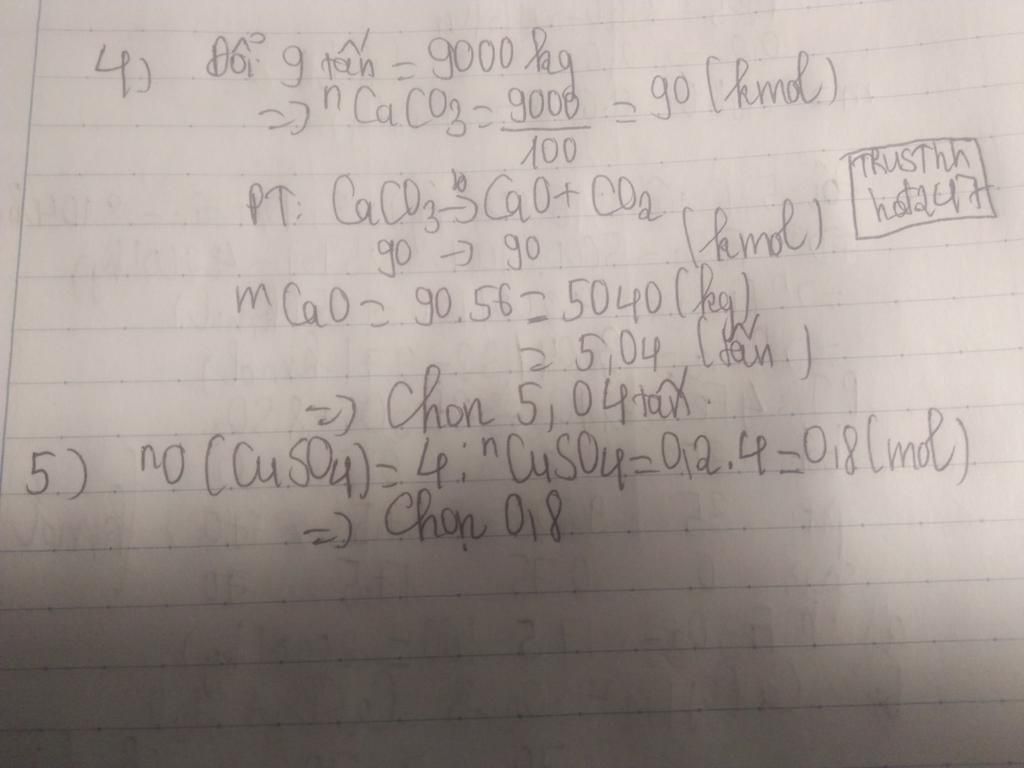 4) Đổi 9 tấn = 9000 kg
=> nCaCO3 = 9000/100 = 90 (kmol)
PT: CaCO3 -to-> CaO + CO2
90 -> 90 (kmol)
mCaO = 90.56 = 5040 (kg)
= 5,04 (tấn)
=> Chọn 5,04 tấn.
5) nO (CuSO4) = 4. nCuSO4 = 0,2.4 = 0,8 (mol)
=> Chọn 0,8
TRUSThh